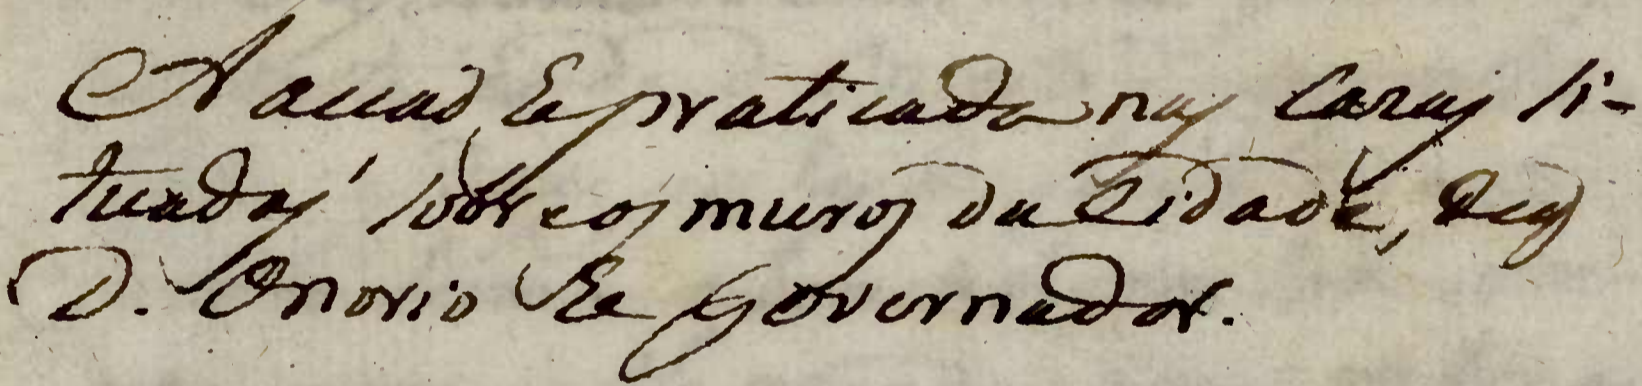 A acçaõ he praticada nas Cazas si-
tuadas sobre os muros da Cidade, de q
D. Onorio he Governador.